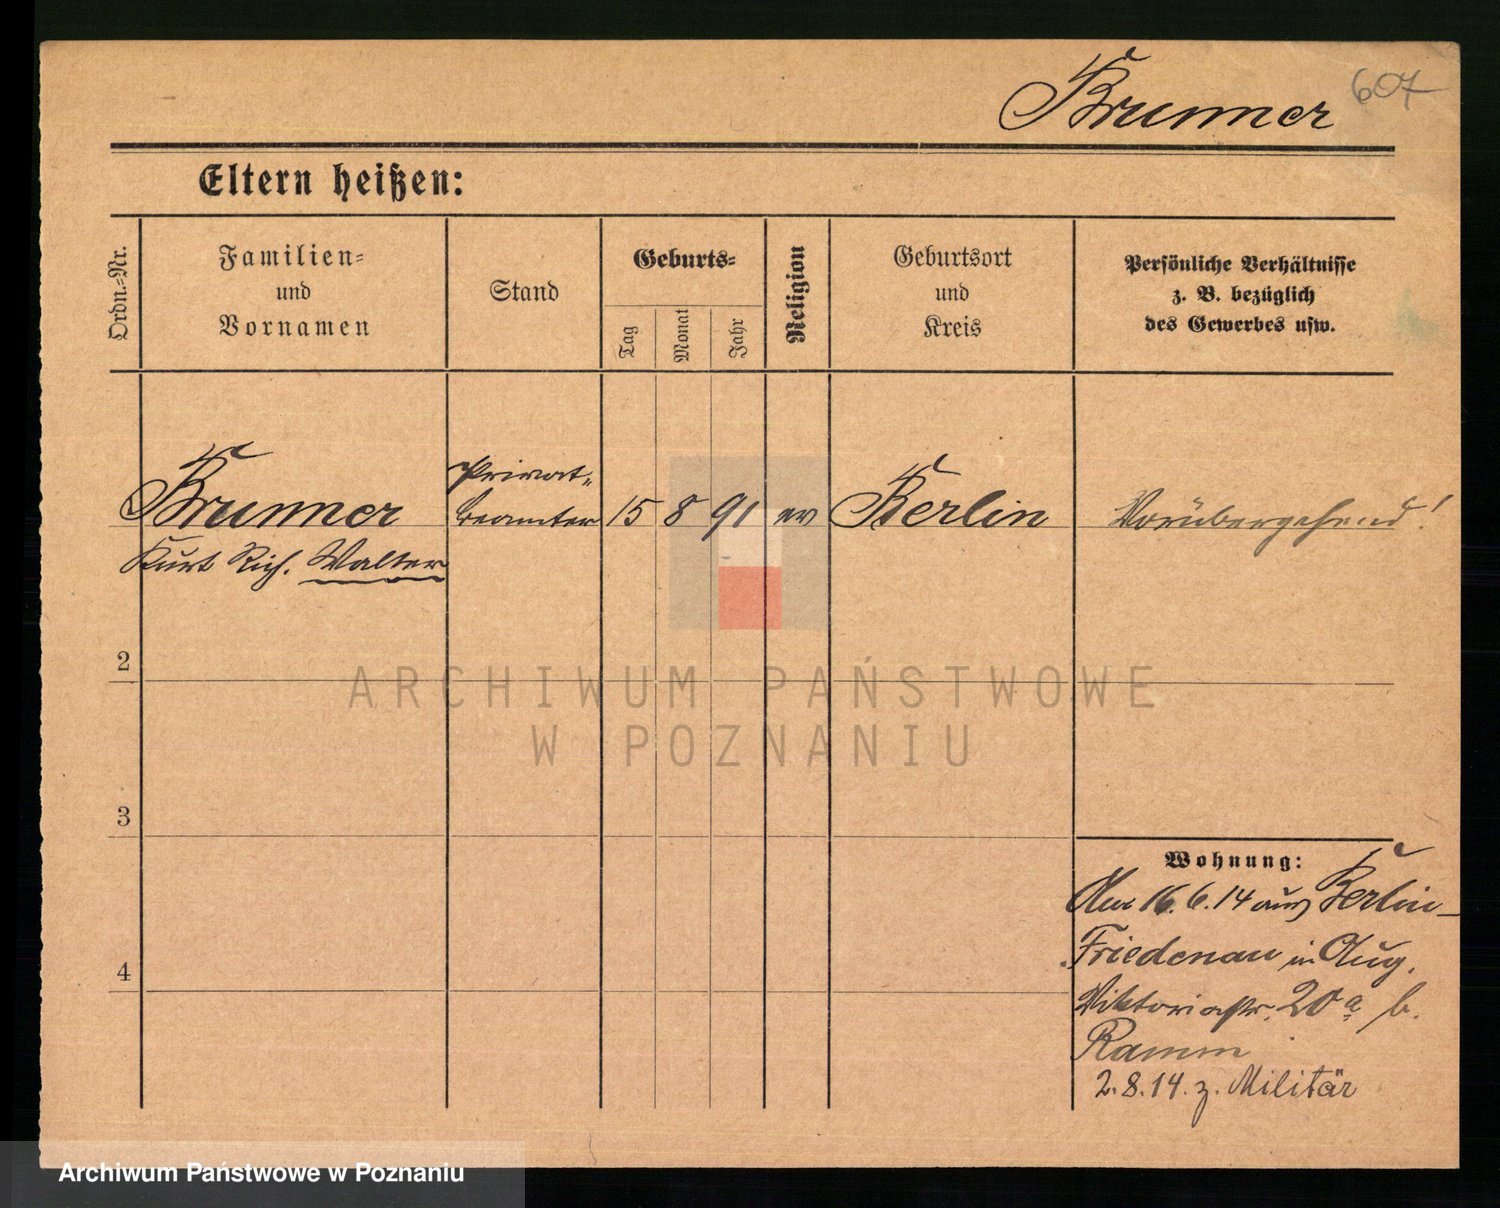 Brunner 607
Eltern heißen:
Ordn.=Nr.
Familien=
und
Vornamen
Stand
Geburts=
Tag
Monat
Jahr
Religion
Geburtsort
und
Kreis
Persönliche Verhältnisse
z. B. bezüglich
des Gewerbes usw.
Brunner
Kurt Rich. Walter
Privat-
beamter
15 8 91 ev Berlin Vorübergehend!
2
3
4
Wohnung:
Am 16.6.14 aus Berlin-
Friedenau in Aug.
Viktoriastr. 20a b.
Ramm
2.8.14. z. Militär
ARCHIWUM PAŃSTWOWE
W POZNANIU
Archiwum Państwowe w Poznaniu